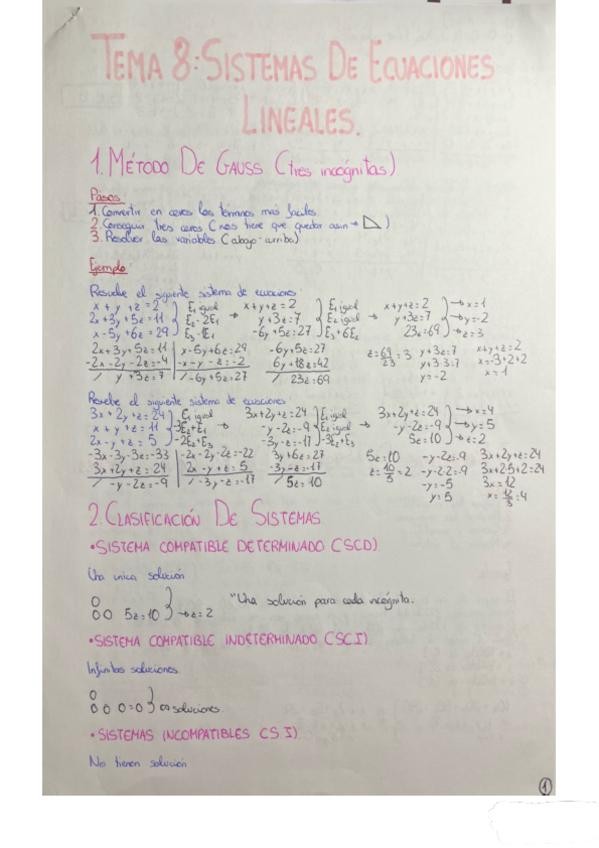 TEMA 8: SISTEMAS DE ECUACIONES
LINEALES.
1. MÉTODO DE GAUSS (tres incógnitas)
Pasos
1. Convertir en ceros los términos más fáciles.
2. Conseguir tres ceros (nos tiene que quedar asín →)
3. Resolver las variables (abajo-arriba)
Ejemplo:
Resuelve el siguiente sistema de ecuaciones:
x + y + z = 2 E₁ igual → x+y+z=2 E₁ igual → x+y+z=2 → x=1
2x+3y+5z=11 E₂-2E₁ y+3z=7 E₂ igual y+3z=7 → y=-2
x-5y+6z=29 E₃-1E₁ -6y+5z=27 E₃+6E₂ 23z=69 → z=3
2x+3y+5z=11 x-5y+6z=29 -6y+5z=27 z=69/23=3 y+3z=7 x+y+z=2
-2x-2y-2z=-4 -x-y-z=-2 6y+18z=42 y+3·3=7 x=-3+2+2
/ y+3z=7 / -6y+5z=27 / 23z=69 y=-2 x=1
Resuelve el siguiente sistema de ecuaciones
3x+2y+z=24 E₁ igual 3x+2y+z=24 E₁ igual 3x+2y+z=24 → x=4
x+y+z=11 -3E₂+E₁ → -y-2z=-9 E₂ igual → -y-2z=-9 → y=5
2x-y+z=5 -2E₂+E₃ -3y-z=-17 -3E₂+E₃ 5z=10 → z=2
-3x-3y-3z=-33 -2x-2y-2z=-22 3y+6z=27 5z=10 -y-2z=-9 3x+2y+z=24
3x+2y+z=24 2x-y+z=5 -3y-z=-17 z=10/5=2 -y-2·2=-9 3x+2·5+2=24
/ -y-2z=-9 / -3y-z=-17 / 5z=10 -y=-5 3x=12
y=5 x=12/3=4
2. CLASIFICACIÓN DE SISTEMAS
• SISTEMA COMPATIBLE DETERMINADO (SCD)
Una única solución
0
0 0 5z=10 → z=2 "Una solución para cada incógnita.
• SISTEMA COMPATIBLE INDETERMINADO (SCI)
Infinitas soluciones
0
0 0 0=0 ∞ soluciones
• SISTEMAS INCOMPATIBLES (SI)
No tienen solución
1